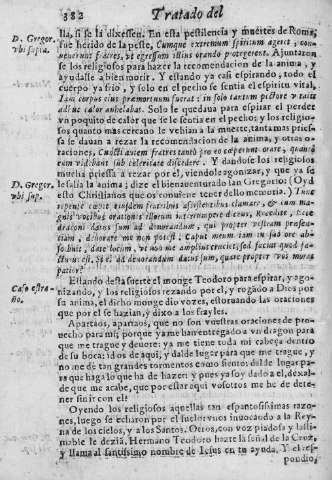 382 Tratado del
D. Gregor. vbi supra.
lla, si se la dixessen. En esta pestilencia y muertes de Roma,
fue herido de la peste, Cumque extremum spiritum ageret, con-
uenerunt fratres, vt egressum illius orando protegerent. Ajuntaron
se los religiosos para hazer la recomendacion de la anima, y
ayudalle a bien morir. Y estando ya casi espirando, todo el
cuerpo ya frio, y solo en el pecho se sentia el espiritu vital,
Iam corpus eius præmortuum fuerat: in solo tantum pectore vitalis
adhuc calor anhelabat. Solo le quedaua para espirar el perder
vn poquito de calor que se le sentia en el pecho: y los religio-
sos quanto mas cercano le vehian a la muerte, tanta mas pries-
sa le dauan a rezar la recomendacion de la anima, y otras ora-
ciones, Cuncti autem fratres tantò pro eo cœperunt orare, quantò
eum videbant sub celeritate discedere. Y dandose los religiosos
mucha priessa a rezar por el, viendole agonizar, y que ya se
D. Gregor. vbi sup.
le salia la anima; dize el bienauenturado san Gregorio: (Oyd
esto Christianos que os conuiene tener dello memoria.) Tunc
repente cœpit eisdem fratribus assistentibus clamare, & cum mag-
nis vocibus orationes illorum interrumpere dicens, Recedite, Ecce
draconi datus sum ad deuorandum, qui propter vestram præsen-
tiam, deuorare me non potest: Caput meum iam in suo ore absor-
buit, date locum, vt non me amplius cruciet, sed faciat quod factu-
rus est. Si ei ad deuorandum datus sum, quare propter vos moras
patior?
Caso estraño.
Estando desta suerte el monge Teodoro para espirar, y ago-
nizando, y los religiosos rezando por el, y rogado a Dios por
su anima, el dicho monge dio vozes, estoruando las oraciones
que por el se hazian, y dixo a los frayles.
Apartaos, apartaos, que no son vuestras oraciones de pro-
uecho para mi; porque ya me han entregado a vn dragon para
que me trague y deuore: ya me tiene toda mi cabeça dentro
de su boca: idos de aqui, y dalde lugar para que me trague, y
no me de tan grandes tormentos como siento: dalde lugar pa-
ra que haga lo que ha de hazer: y pues ya soy dado a el, dexal-
de que me acabe, que por estar aqui vosotros me he de dete-
ner sin ir con el?
Oyendo los religiosos aquellas tan espantosissimas razo-
nes, luego se echaron por el suelo: vnos inuocando a la Rey-
na de los cielos, y a los Santos. Otros, con voz piadosa y lasti-
mable le dezia. Hermano Teodoro hazte la señal de la Cruz,
y llama al santissimo nombre de Iesus en tu ayuda. Y el res-
pondio,